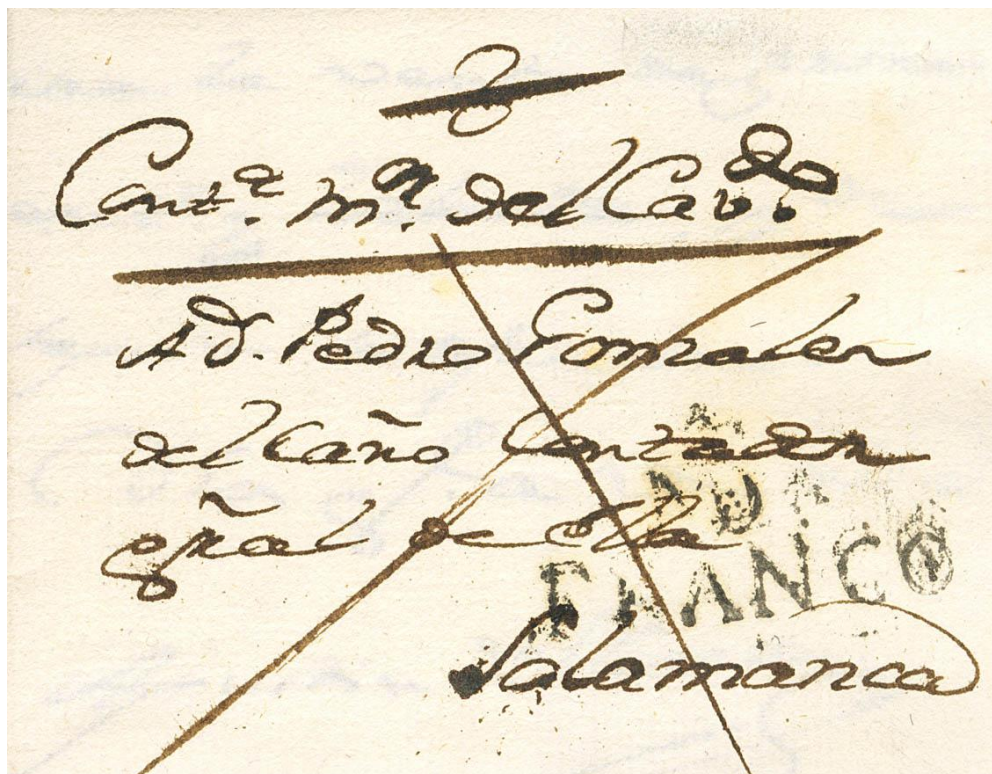 Cont.ª m.ª del Cav.do
A D. Pedro Gonzalez
del Caño Contador
gñal de ella
FRANCO
Salamanca